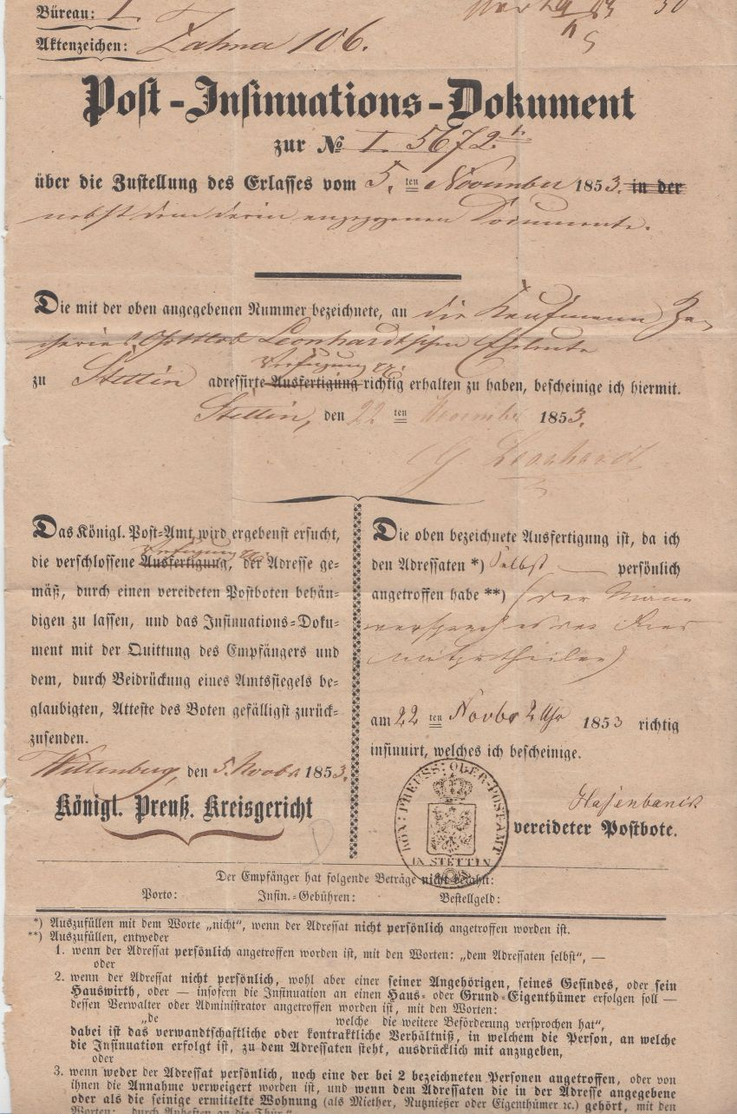 Büreau: I.
Aktenzeichen: Zahna 106.
Post-Insinuations-Dokument
zur № I. 5672.
über die Zustellung des Erlasses vom 5. ten November 1853. in der
nebst dem darin angezogenen Documente.
Die mit der oben angegebenen Nummer bezeichnete, an die Kaufmann Za-
charias Gottlob Leonhardtschen Eheleute
Verfügung
zu Stettin adressirte Ausfertigung richtig erhalten zu haben, bescheinige ich hiermit.
Stettin, den 22 ten November 1853.
G Leonhardt
Das Königl. Post-Amt wird ergebenst ersucht,
Verfügung
die verschlossene Ausfertigung, der Adresse ge-
mäß, durch einen vereideten Postboten behän-
digen zu lassen, und das Insinuations-Doku-
ment mit der Quittung des Empfängers und
dem, durch Beidrückung eines Amtssiegels be-
glaubigten, Atteste des Boten gefälligst zurück-
zusenden.
Wittenberg, den 5. Novbr 1853.
Königl. Preuß. Kreisgericht
Die oben bezeichnete Ausfertigung ist, da ich
den Adressaten *) Selbst persönlich
angetroffen habe **) (der Mann
versprach es
mitzutheilen)
am 22 ten Novbr 2 Uhr 1853 richtig
insinuirt, welches ich bescheinige.
vereideter Postbote.
KÖN: PREUSS: OBER-POST-AMT
IN STETTIN
Der Empfänger hat folgende Beträge nicht bezahlt:
Porto: Insin.-Gebühren: Bestellgeld:
*) Auszufüllen mit dem Worte „nicht“, wenn der Adressat nicht persönlich angetroffen worden ist.
**) Auszufüllen, entweder
1. wenn der Adressat persönlich angetroffen worden ist, mit den Worten: „dem Adressaten selbst“, —
oder
2. wenn der Adressat nicht persönlich, wohl aber einer seiner Angehörigen, seines Gesindes, oder sein
Hauswirth, oder — insofern die Insinuation an einen Haus- oder Grund-Eigenthümer erfolgen soll —
dessen Verwalter oder Administrator angetroffen worden ist, mit den Worten:
„de welche die weitere Beförderung versprochen hat“,
dabei ist das verwandtschaftliche oder kontraktliche Verhältniß, in welchem die Person, an welche
die Insinuation erfolgt ist, zu dem Adressaten steht, ausdrücklich mit anzugeben,
oder
3. wenn weder der Adressat persönlich, noch eine der bei 2 bezeichneten Personen angetroffen, oder von
ihnen die Annahme verweigert worden ist, und wenn dem Adressaten die in der Adresse angegebene
oder als die seinige ermittelte Wohnung (als Miether, Nutznießer oder Eigenthümer ꝛc.) gehört, mit den
Worten: „durch Anheften an die Thür“